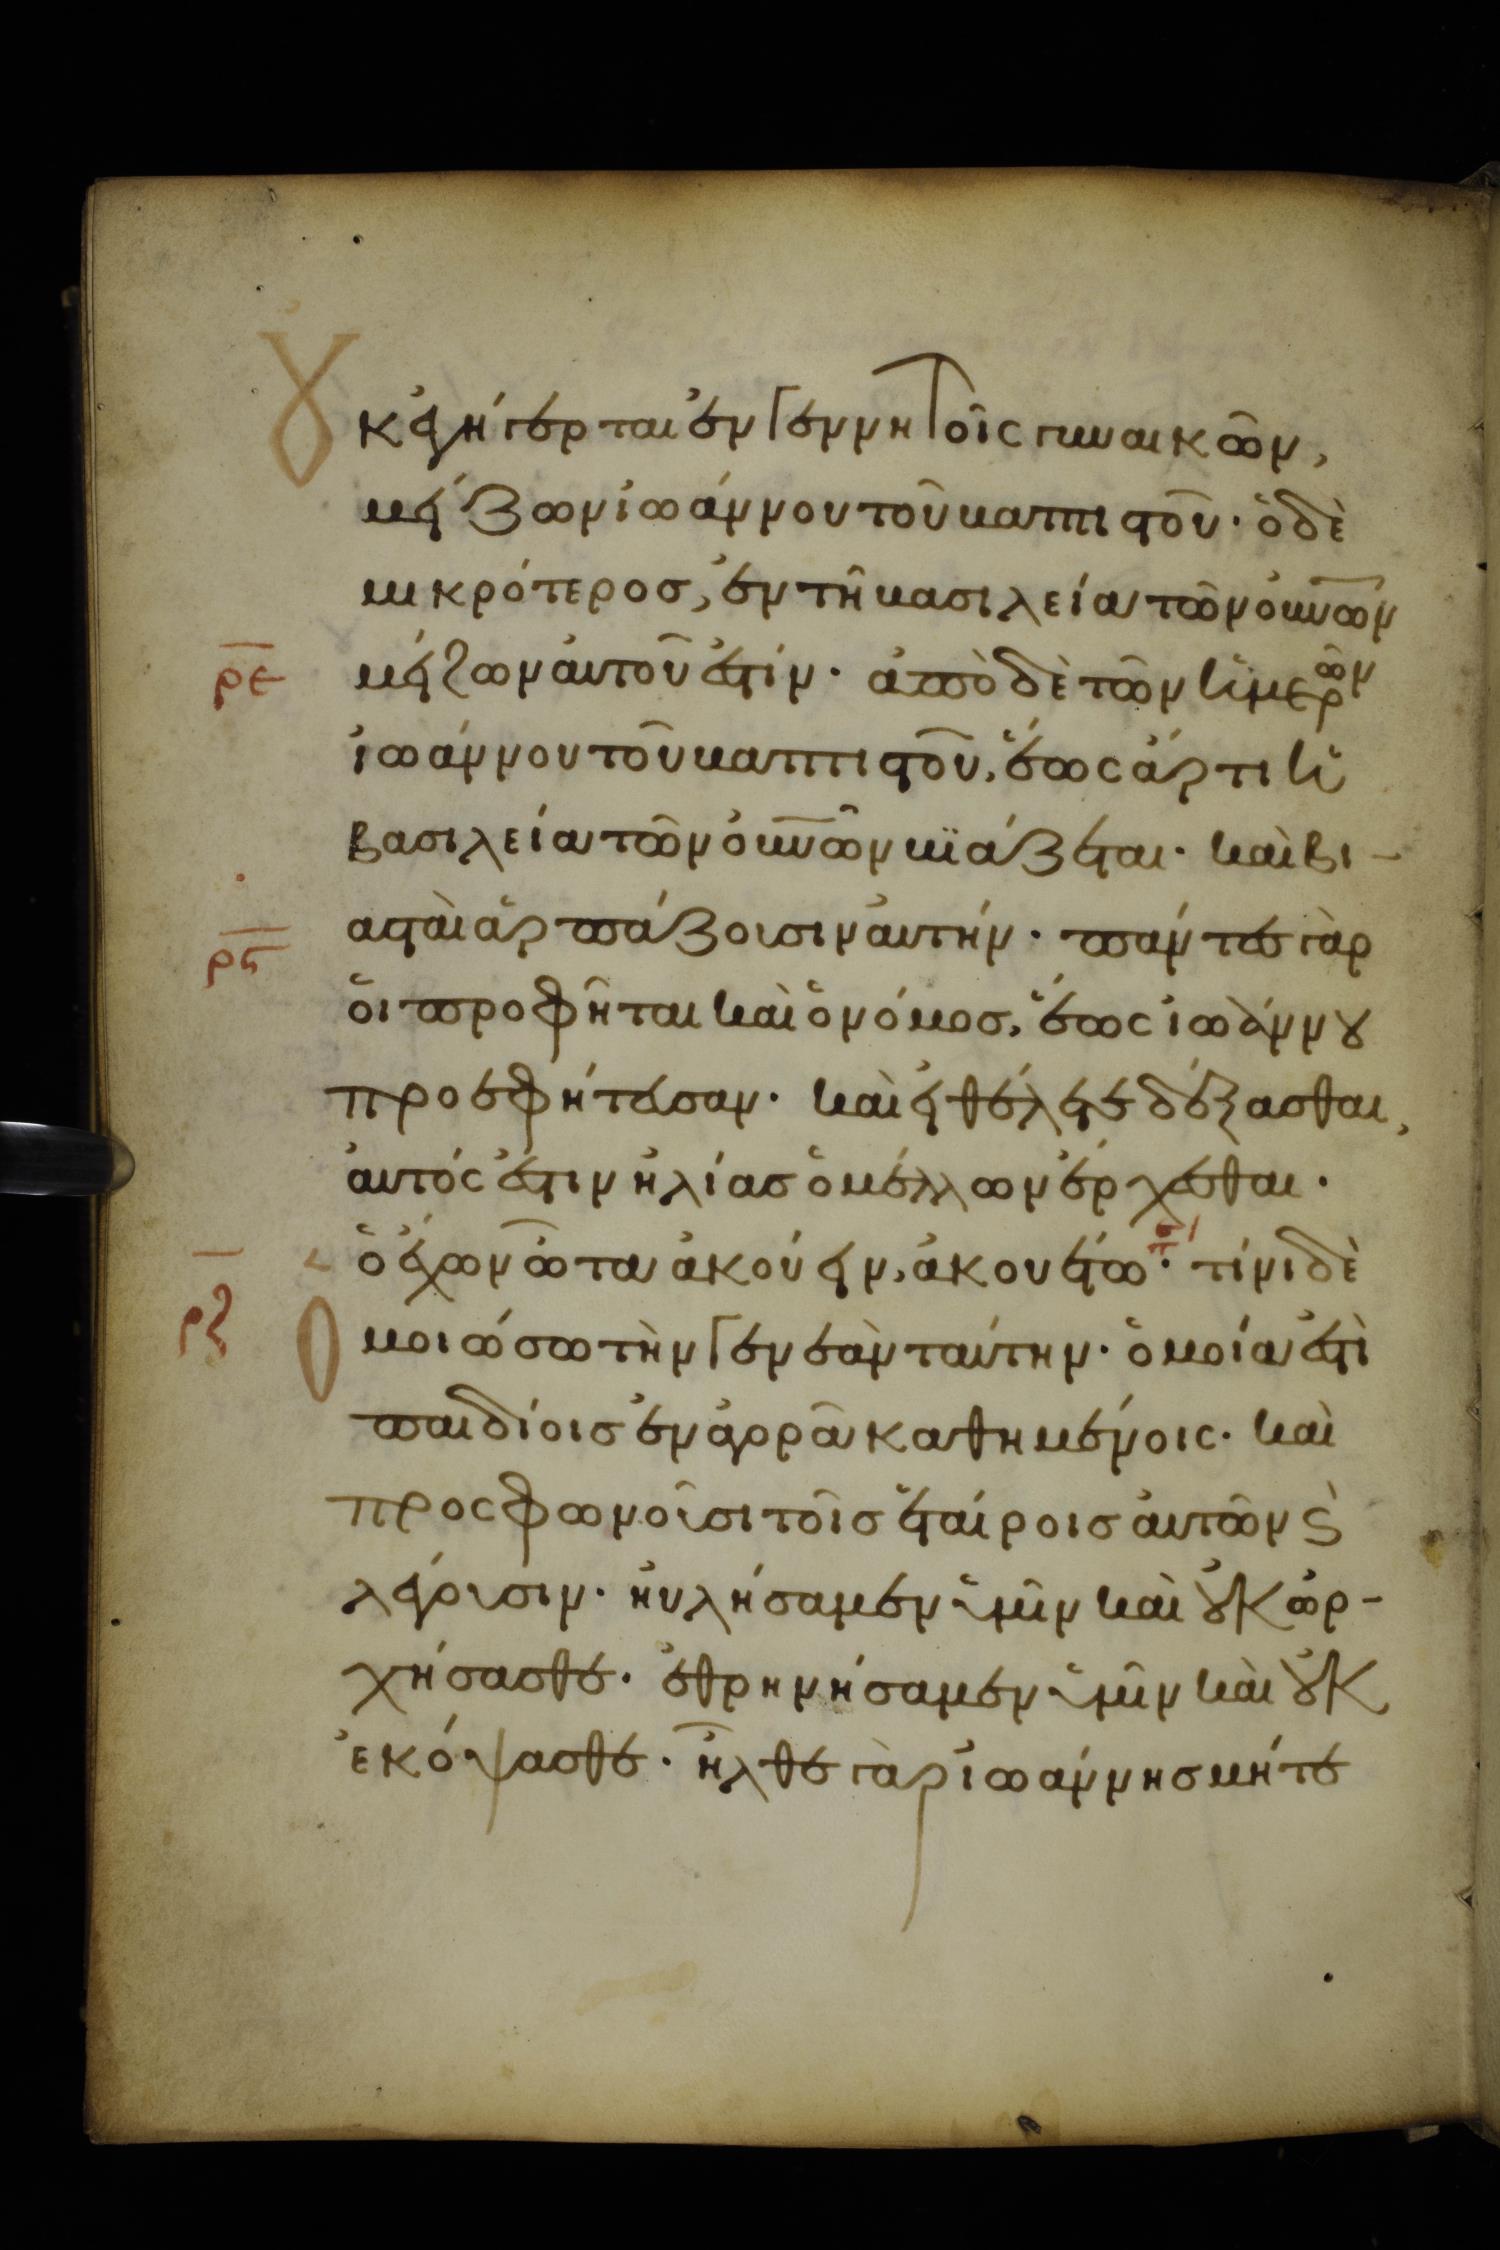 Ȣ̓κ ἐγήγερται ἐν γεννητοῖς γυναικῶν,
μείζων ἰωάννου τοῦ βαπτιστοῦ· ὁ δὲ
μικρότερος, ἐν τῆ βασιλεία τῶν οὐν͞ῶν
ρε μείζων αὐτοῦ ἐστίν· ἀπὸ δὲ τῶν ἡμερῶν
ἰωάννου τοῦ βαπτιστοῦ, ἕως ἄρτι ἡ
βασιλεία τῶν οὐν͞ῶν βϊάζεται· καὶ βι-
ρς ασταὶ ἁρπάζουσιν αὐτήν· πάντες γὰρ
οἱ προφῆται καὶ ὁ νόμος, ἕως ἰωάννȣ
προεφήτευσαν· καὶ εἰ θέλετε δέξασθαι,
αὐτός ἐστιν ἠλίας ὁ μέλλων ἔρχεσθαι·
ὁ ἔχων ὦτα ἀκούειν, ἀκουέτω· τίνι δὲ
ρζ Ὁμοιώσω τὴν γενεὰν ταύτην· ὁμοία ἐστὶ
παιδίοις ἐν ἀγορᾶ καθημένοις· καὶ
προσφωνοῦσι τοῖς ἑταίροις αὐτῶν ϗ̀
λέγουσιν· ηὐλήσαμεν ὑμῖν καὶ ȣ̓κ ὠρ-
χήσασθε· ἐθρηνήσαμεν ὑμῖν καὶ ȣ̓κ
ἐκόψασθε· ἦλθε γὰρ ἰωάννης μήτε